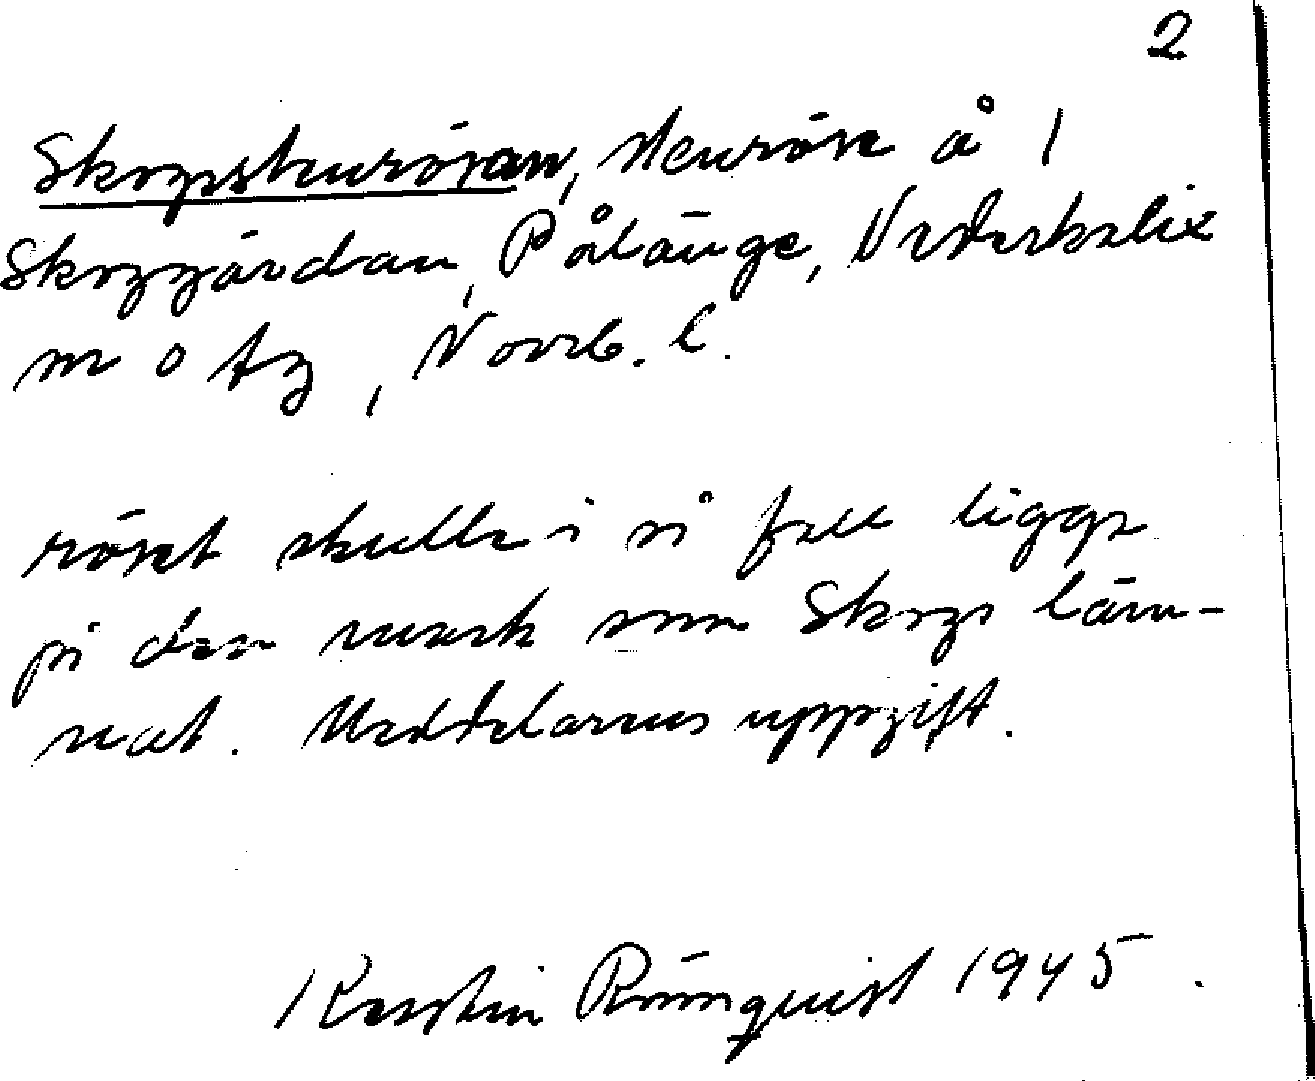 2
Skogsstenrösen, stenröse å 1
Skoggärdan, Pålänge, Nederkalix
m o tg, Norrb. l.
röset skulle i så fall ligga
på den mark som Skogs läm-
nat. Meddelarens uppgift.
Kerstin Rönnquist 1945.